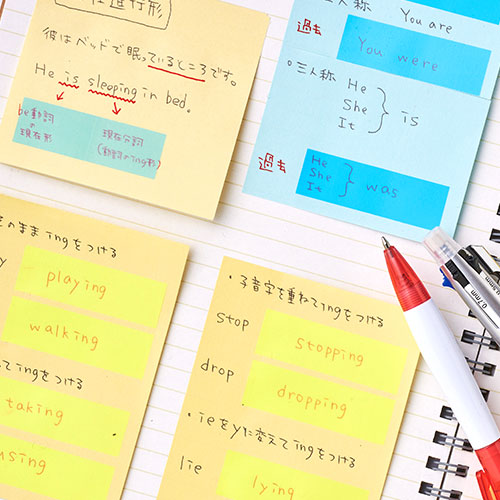 在進行形
彼はベッドで眠っているところです。
He is sleeping in bed.
be動詞
現在形
現在分詞
(動詞のing形)
三人称
You are
過去
You were
○三人称
He
She
It
is
過去
He
She
It
was
のままingをつける
playing
walking
てingをつける
taking
using
・子音字を重ねてingをつける
stop
stopping
drop
dropping
・ieをyに変えてingをつける
lie
lying
0.7mm